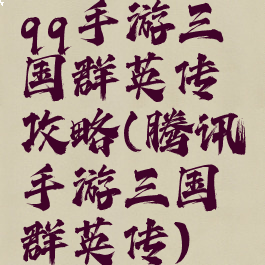 qq手游三
国群英传
攻略(腾讯
手游三国
群英传)